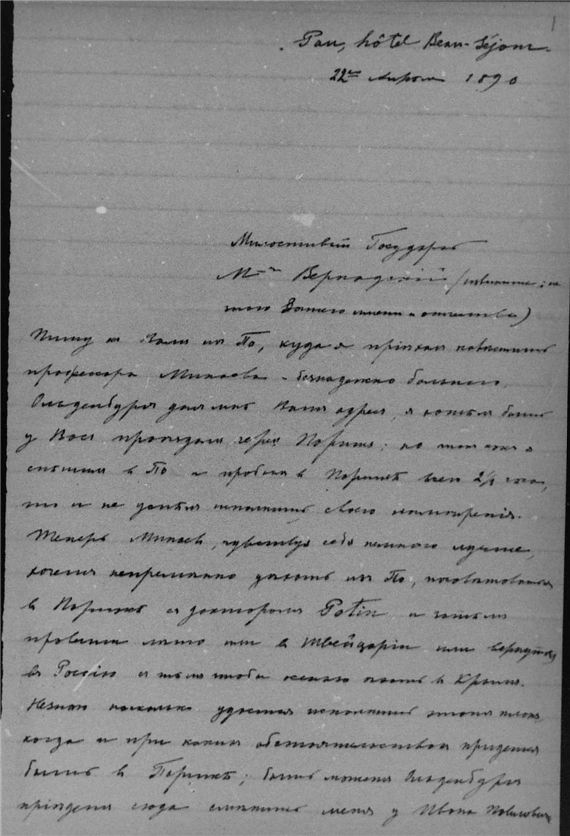 Pau, hôtel Beau-Séjour.
22го Апреля 1890
Милостивый Государь
Mr Вернадский (извините; не
знаю Вашего имени и отчества)
Пишу к Вам из По, куда я приехал навестить
профессора Минаева - безнадежно больного.
Ольденбург дал мне Ваш адрес, я хотел быть
у Вас проездом через Париж; но так как я
спешил в По и пробыл в Париже всего 2½ часа,
то и не успел исполнить своего намерения.
Теперь Минаев, чувствуя себя немного лучше,
хочет непременно уехать из По, посоветоваться
в Париже с доктором Potin и затем
провести лето или в Швейцаріи или вернуться
въ Россію с тем чтобы осенью ехать в Крым.
Незнаю насколько удастся исполнить этот план,
когда и при каких обстоятельствах придется
быть в Париже; быть может Ольденбург
приедет сюда сменить меня у Ивана Павловича